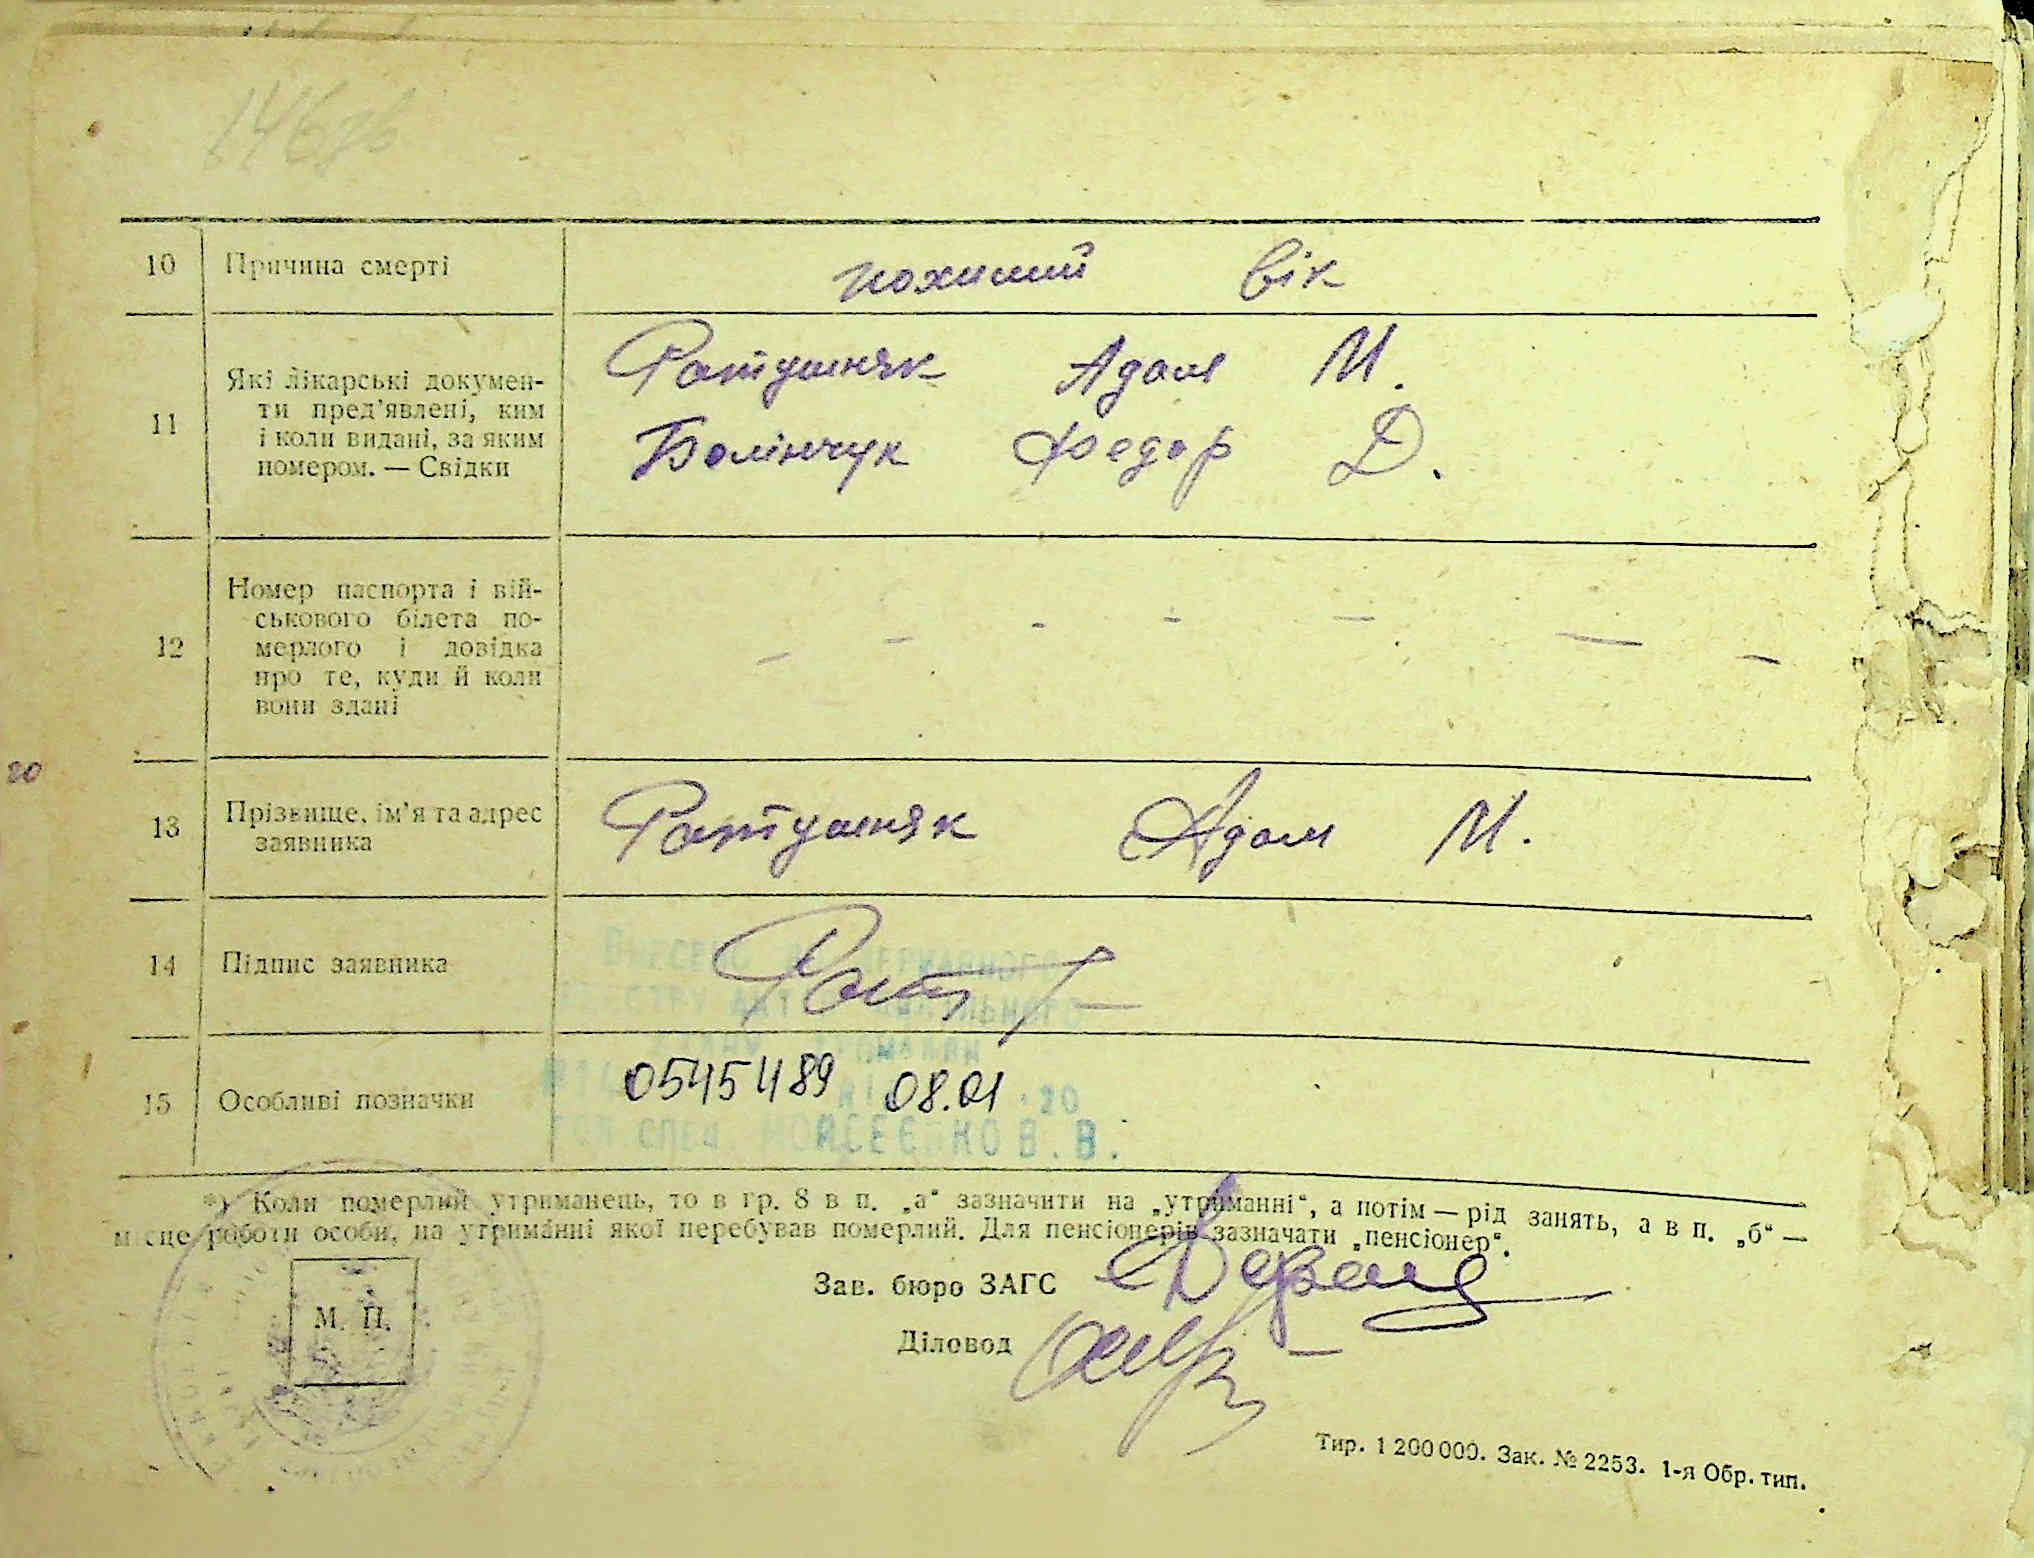 10 Причина смерті похилий вік
11 Які лікарські докумен-
ти пред'явлені, ким
і коли видані, за яким
номером. — Свідки
Ратушняк Адам М.
Болінчук Федор Д.
12 Номер паспорта і вій-
ськового білета по-
мерлого і довідка
про те, куди й коли
вони здані
— — — — — —
20
13 Прізвище, ім'я та адрес
заявника
Ратушняк Адам М.
14 Підпис заявника Рат
15 Особливі позначки 0545489 08.01
*) Коли померлий утриманець, то в гр. 8 в п. „а“ зазначити на „утриманні“, а потім — рід занять, а в п. „б“ —
місце роботи особи, на утриманні якої перебував померлий. Для пенсіонерів зазначати „пенсіонер“.
Зав. бюро ЗАГС
М. П.
Діловод
Тир. 1 200 000. Зак. № 2253. 1-я Обр. тип.